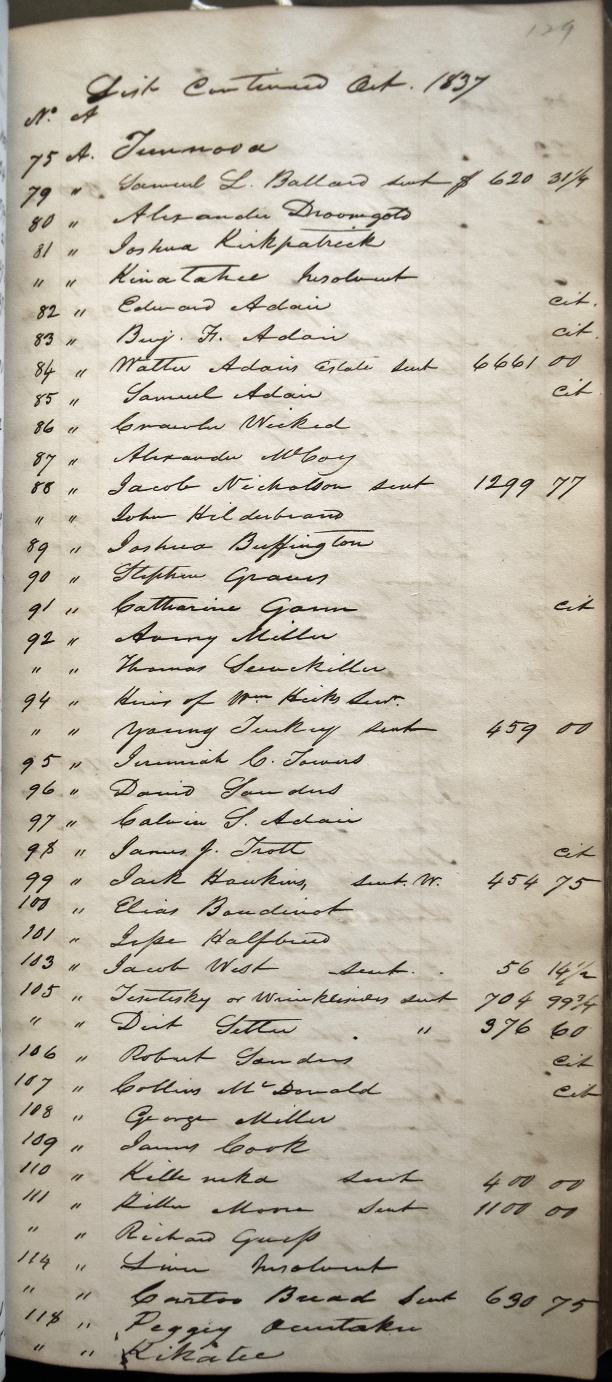 129
List Continued Oct. 1837
No. A
75 A. Tunnova
79 " Samuel L. Ballard sent $ 620 31¼
80 " Alexander Droomgold
81 " Joshua Kirkpatrick
" " Kinatahee Insolvent
82 " Edward Adair cit.
83 " Benj. F. Adair cit.
84 " Walter Adairs Estate sent 6661 00
85 " Samuel Adair cit
86 " Crawler Wicked
87 " Alexander McCoy
88 " Jacob Nicholson sent 1299 77
" " John Hilderbrand
89 " Joshua Buffington
90 " Stephen Graves
91 " Catharine Gann cit
92 " Avery Miller
" " Thomas
94 " Heirs of Wm Hicks Senr.
" " Young Turkey sent 459 00
95 " Jeremiah C. Towers
96 " David Sanders
97 " Calvin S. Adair
98 " James J. Trott cit
99 " Jack Hawkins, sent. W. 454 75
100 " Elias Boudinot
101 " Jesse Halfbreed
103 " Jacob West sent. . 56 14½
105 " or sent 704 99¾
" " Dirt Setter " 376 60
106 " Robert Sanders cit
107 " Collins McDonald cit
108 " George Miller
109 " James Cook
110 " sent 400 00
111 " Moore sent 1100 00
" " Richard Guess
114 " Insolvent
" " Bread sent 630 75
118 " Peggy
" " Kikatee